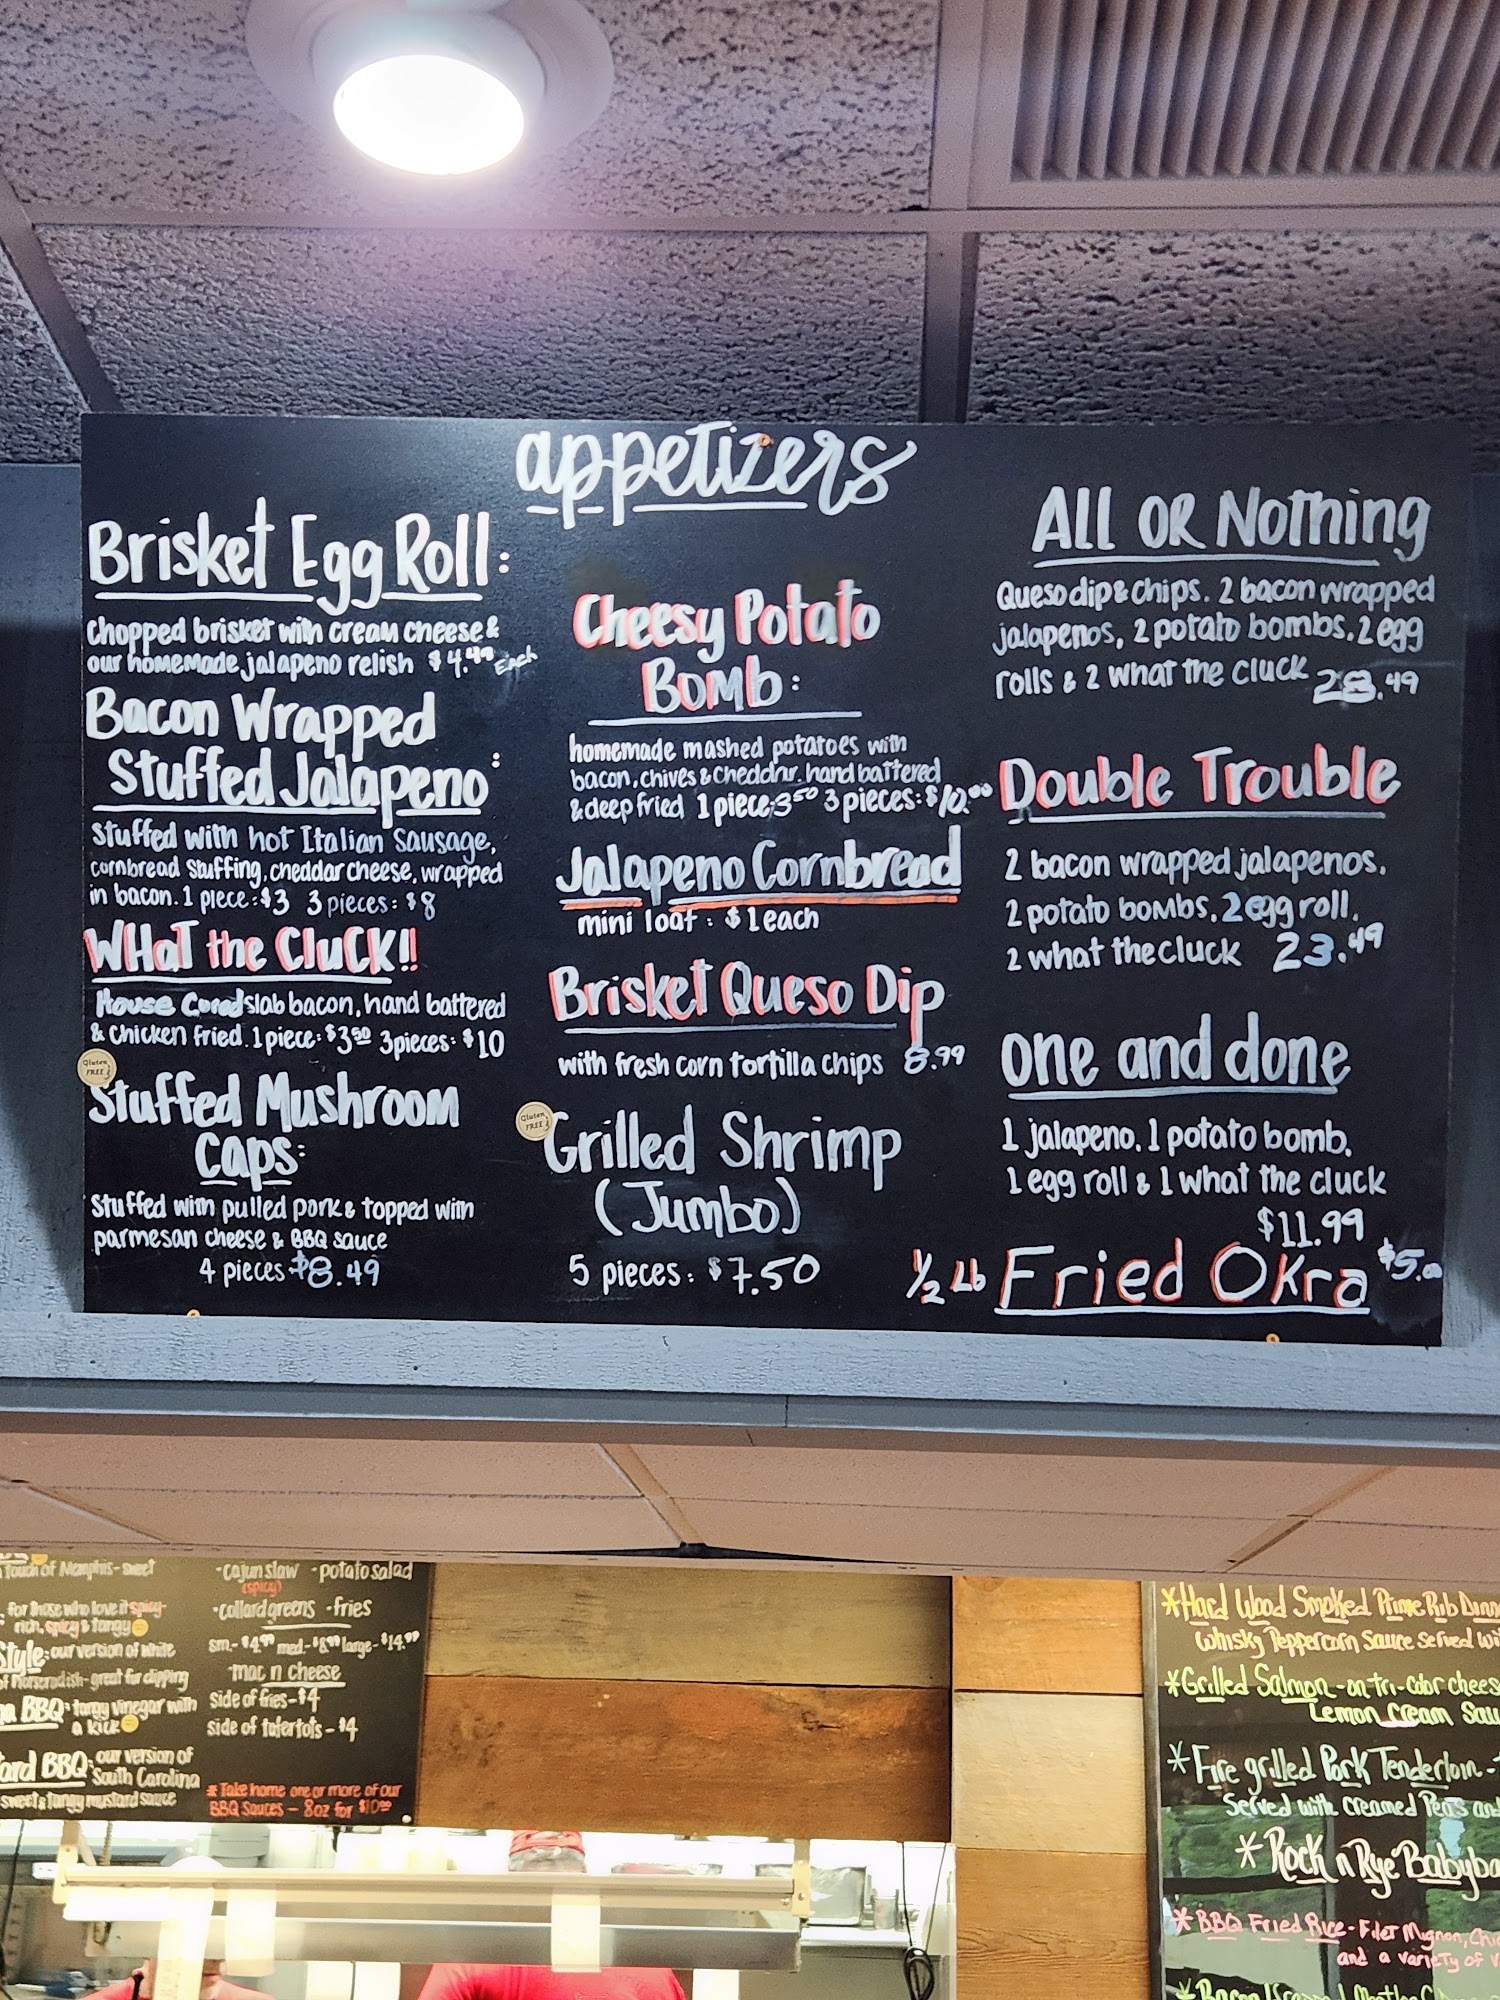 appetizers
Brisket Egg Roll:
Chopped brisket with cream cheese &
our homemade jalapeno relish $4.49 Each
Bacon Wrapped
Stuffed Jalapeno:
Stuffed with hot Italian Sausage,
cornbread stuffing, cheddar cheese, wrapped
in bacon. 1 piece: $3 3 pieces: $8
WHaT the CLucK!!
House Cured slab bacon, hand battered
& chicken fried. 1 piece: $3.50 3 pieces: $10
Gluten FREE
Stuffed Mushroom
Caps:
Stuffed with pulled pork & topped with
parmesan cheese & BBQ sauce
4 pieces $8.49
Cheesy Potato
Bomb:
homemade mashed potatoes with
bacon, chives & cheddar. hand battered
& deep fried 1 piece: 3.50 3 pieces: $10.00
Jalapeno Cornbread
mini loaf: $1 each
Brisket Queso Dip
with fresh corn tortilla chips 8.99
Gluten FREE
Grilled Shrimp
(Jumbo)
5 pieces: $7.50
ALL OR Nothing
Queso dip & chips. 2 bacon wrapped
jalapenos, 2 potato bombs, 2 egg
rolls & 2 what the cluck 28.49
Double Trouble
2 bacon wrapped jalapenos,
2 potato bombs, 2 egg roll,
2 what the cluck 23.49
one and done
1 jalapeno, 1 potato bomb,
1 egg roll & 1 what the cluck
$11.99
1/2 Lb Fried Okra $5.00
Touch of Memphis - sweet
for those who love it spicy-
rich, spicy & tangy
Style: our version of white
of horseradish - great for dipping
BBQ: tangy vinegar with
a kick
ard BBQ: our version of
South Carolina
sweet & tangy mustard sauce
-cajun slaw -potato salad
(spicy)
-collard greens -fries
sm.- $4.99 med.- $8.99 large- $14.99
mac n cheese
side of fries - $4
side of tatertots - $4
* Take home one or more of our
BBQ Sauces - 8oz for $10.00
*Hard Wood Smoked Prime Rib Dinn
Whisky Peppercorn Sauce served wi
*Grilled Salmon - on tri-color chees
Lemon Cream Sau
*Fire grilled Pork Tenderloin -
Served with creamed Peas and
* Rock n Rye Babyba
* BBQ Fried Rice - Filet Mignon, Chi
and a variety of v